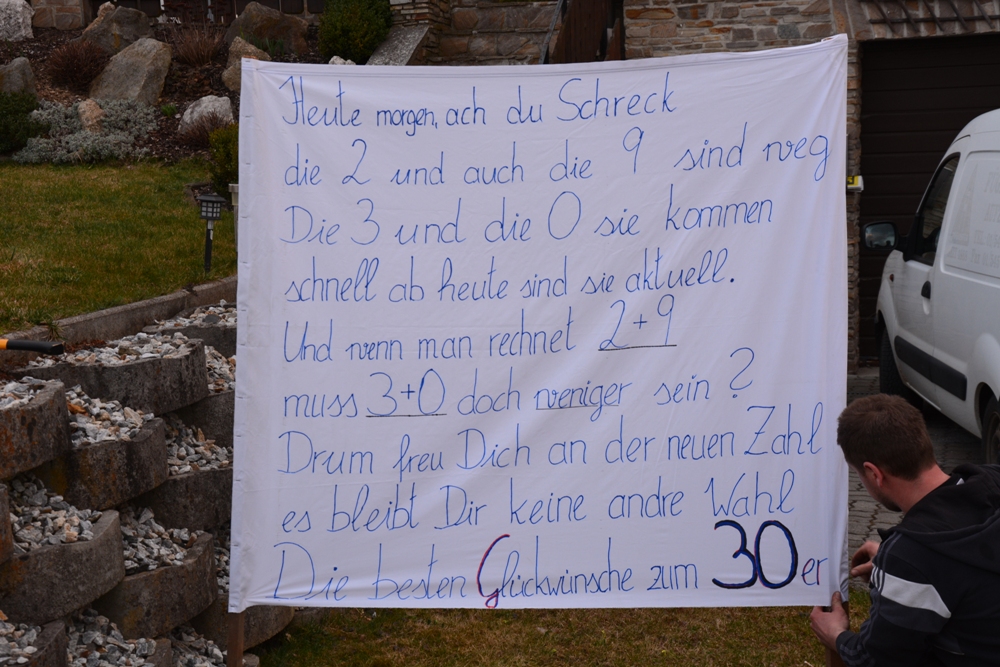 Heute morgen, ach du Schreck
die 2 und auch die 9 sind weg
Die 3 und die 0 sie kommen
schnell ab heute sind sie aktuell.
Und wenn man rechnet 2+9
muss 3+0 doch weniger sein ?
Drum freu Dich an der neuen Zahl
es bleibt Dir keine andre Wahl
Die besten Glückwünsche zum 30er